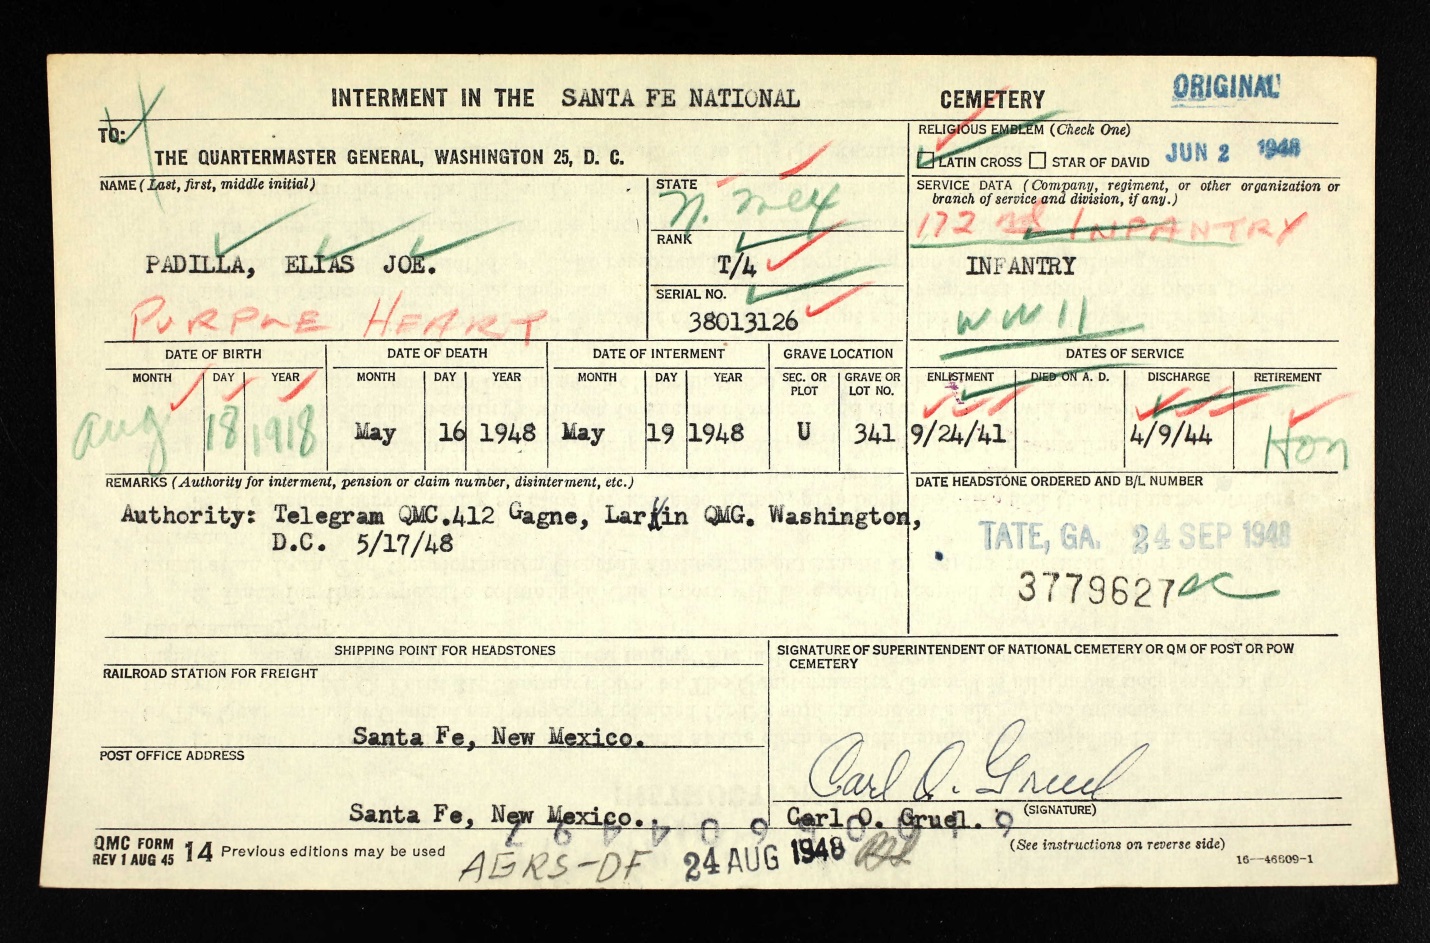 INTERMENT IN THE SANTA FE NATIONAL CEMETERY
ORIGINAL
TO:
THE QUARTERMASTER GENERAL, WASHINGTON 25, D. C.
RELIGIOUS EMBLEM (Check One)
LATIN CROSS STAR OF DAVID
JUN 2 1948
NAME (Last, first, middle initial)
PADILLA, ELIAS JOE.
PURPLE HEART
STATE
N. Mex
RANK
T/4
SERIAL NO.
38013126
SERVICE DATA (Company, regiment, or other organization or
branch of service and division, if any.)
172nd INFANTRY
INFANTRY
WW II
DATE OF BIRTH
MONTH DAY YEAR
Aug 18 1918
DATE OF DEATH
MONTH DAY YEAR
May 16 1948
DATE OF INTERMENT
MONTH DAY YEAR
May 19 1948
GRAVE LOCATION
SEC. OR
PLOT
GRAVE OR
LOT NO.
U 341
DATES OF SERVICE
ENLISTMENT DIED ON A. D. DISCHARGE RETIREMENT
9/24/41 4/9/44 Hon
REMARKS (Authority for interment, pension or claim number, disinterment, etc.)
Authority: Telegram QMC.412 Gagne, Larkin QMG. Washington,
D.C. 5/17/48
DATE HEADSTONE ORDERED AND B/L NUMBER
TATE, GA. 24 SEP 1948
3779627
SHIPPING POINT FOR HEADSTONES
RAILROAD STATION FOR FREIGHT
Santa Fe, New Mexico.
POST OFFICE ADDRESS
Santa Fe, New Mexico.
SIGNATURE OF SUPERINTENDENT OF NATIONAL CEMETERY OR QM OF POST OR POW
CEMETERY
Carl O. Gruel
(SIGNATURE)
Carl O. Gruel.
QMC FORM
REV 1 AUG 45 14 Previous editions may be used
AGRS-DF
24 AUG 1948
(See instructions on reverse side)
16—46809-1